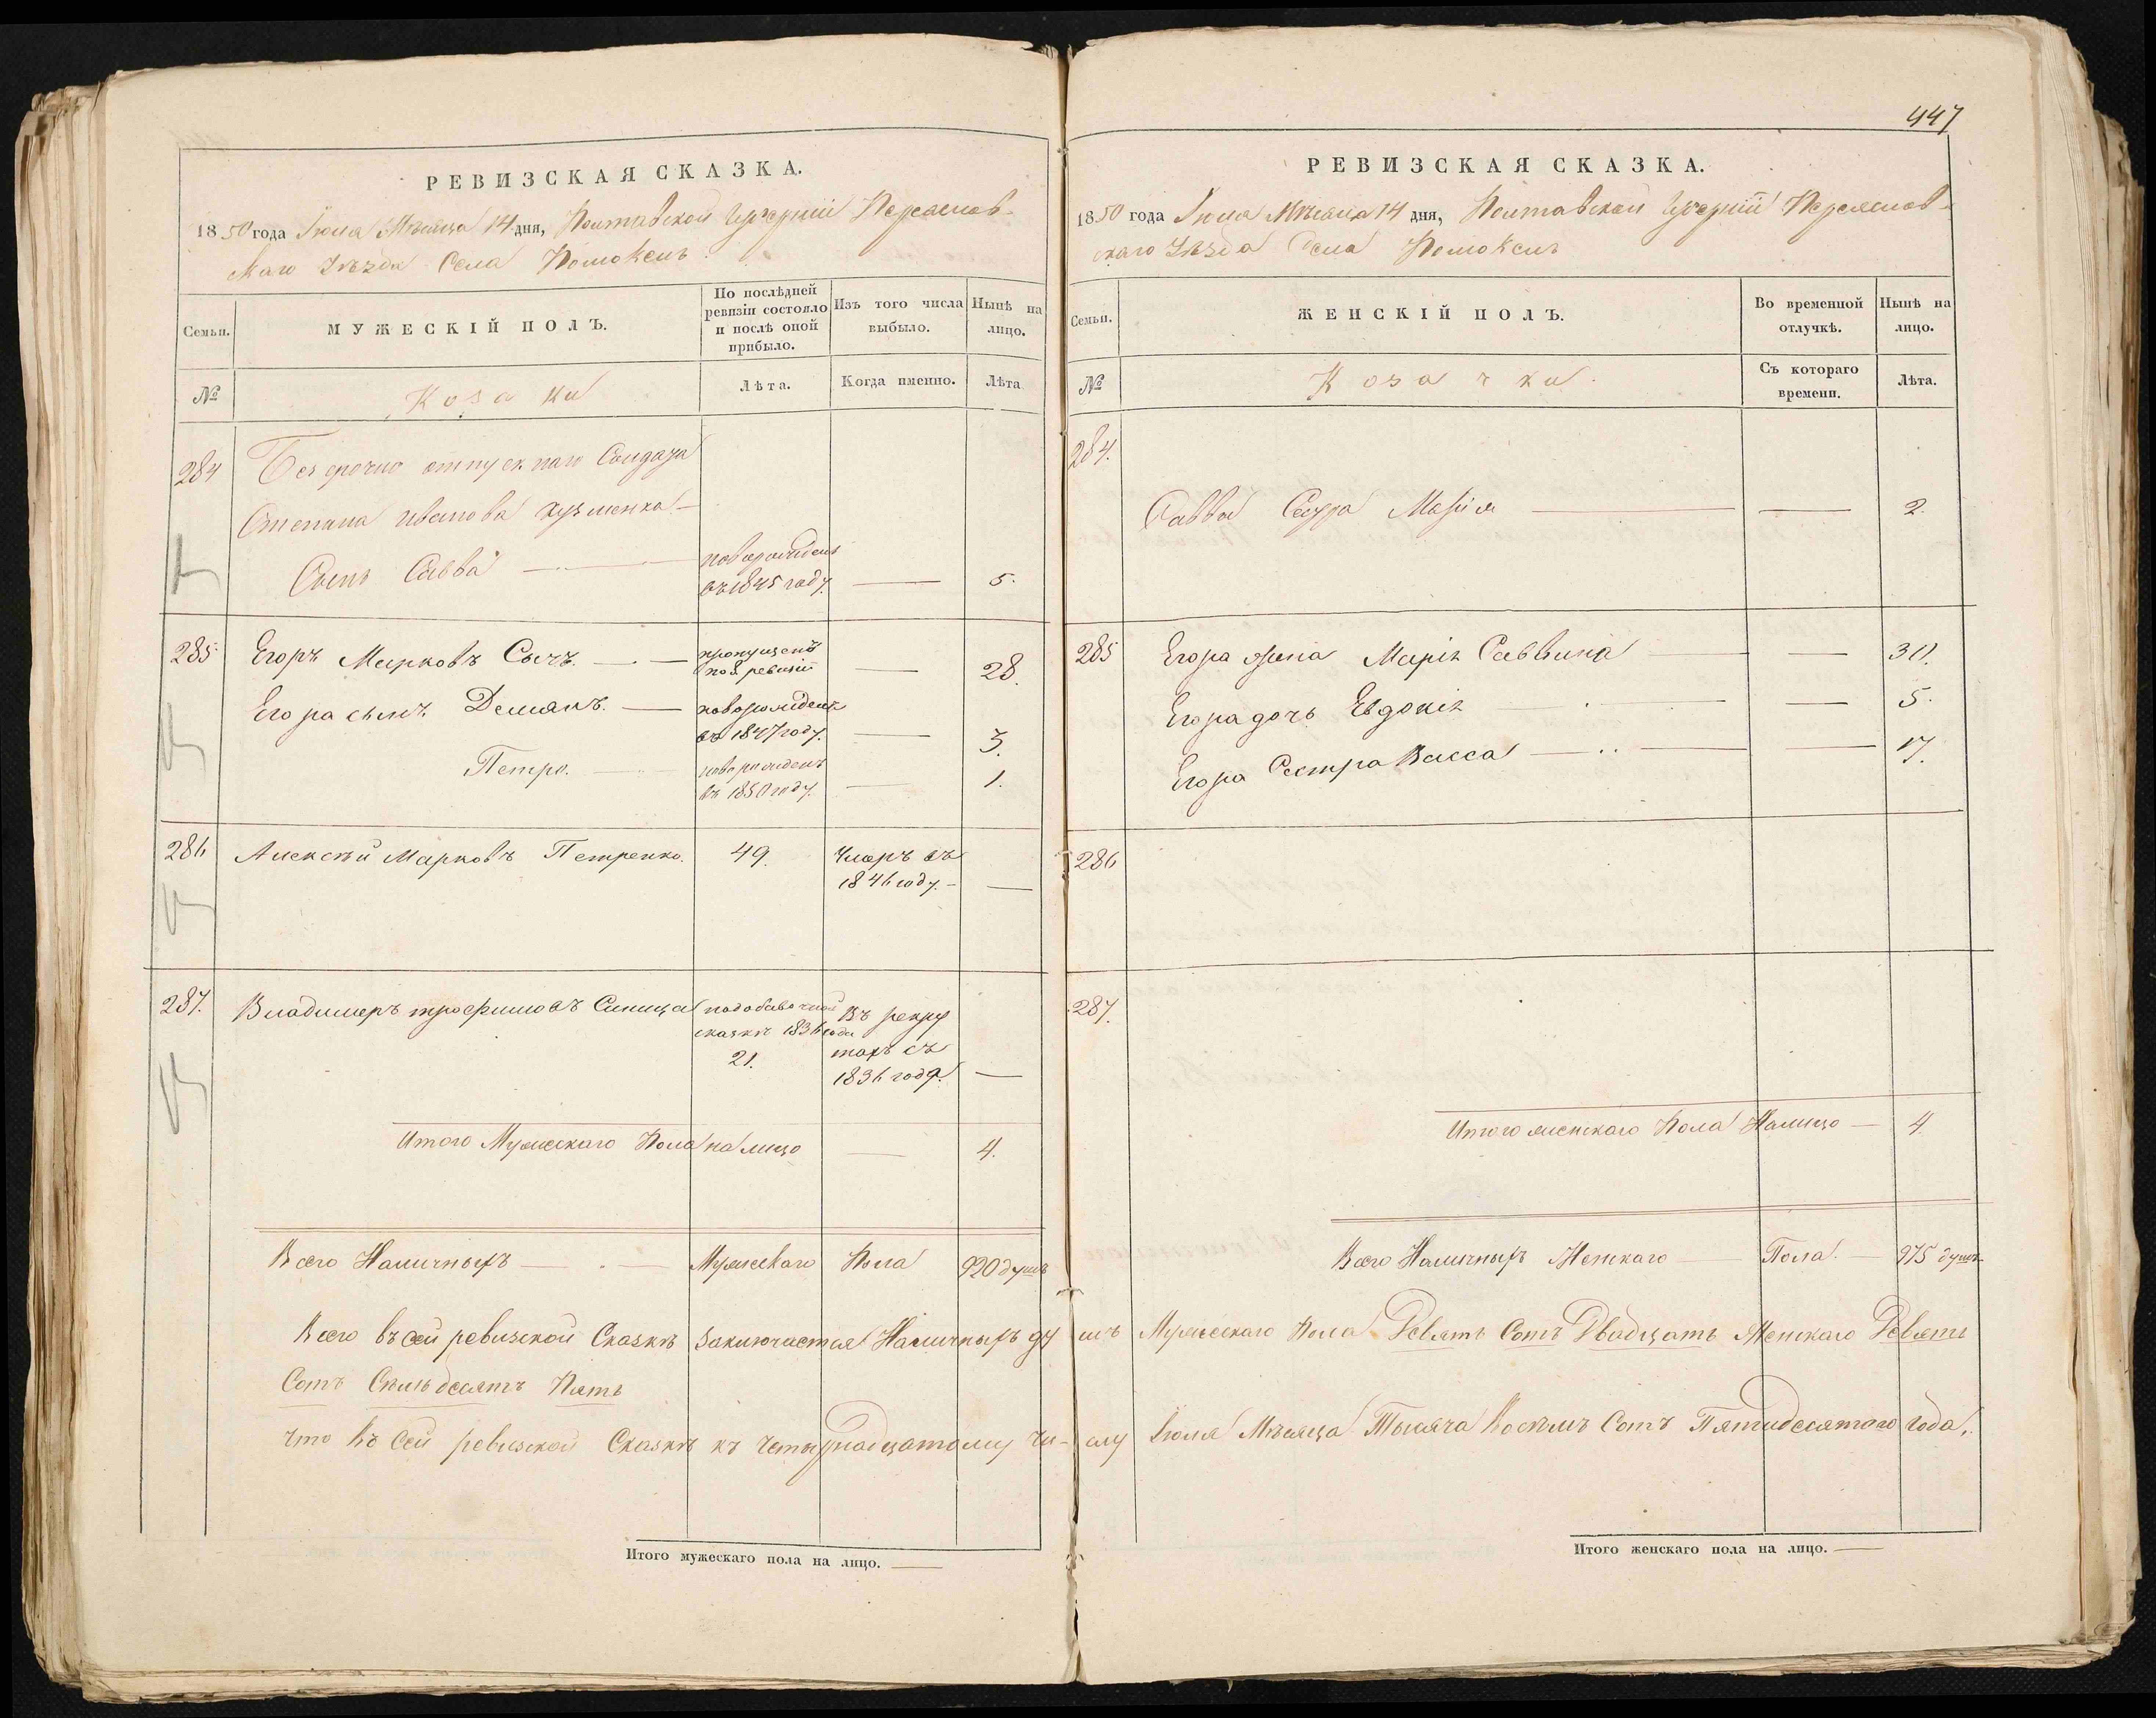 РЕВИЗСКАЯ СКАЗКА.
1850 года Іюля Мѣсяца 14 дня, Полтавской Губерніи Переяслов-
скаго Уѣзда Села Помоклеи
Семьи.
МУЖЕСКІЙ ПОЛЪ.
По послѣдней ревизіи состояло и послѣ оной прибыло.
Изъ того числа выбыло.
Нынѣ на лицо.
№
Козаки
Лѣта.
Когда именно.
Лѣта
284 Безсрочно отпускнаго Солдата
Степана Иванова Кузменка —
Сынъ Савва — новорожденъ
въ 1845 году. — 5.
285 Егоръ Марковъ Сычъ. — пропущенъ
по 8 ревизіи — 28.
Егора сынъ Демянъ. — новорожденъ
въ 1847 году. — 3.
Петро. — новорожденъ
въ 1850 году. — 1.
286 Алексѣй Марковъ Петренко. 49. Умеръ въ
1846 году. —
287. Владимеръ Трофимовъ Синица подобавочной Въ рекру
сказкѣ 1836 года
21. тахъ съ
1836 года. —
Итого Мужескаго Пола на лицо — 4.
Всего Наличныхъ — Мужескаго Пола 920 душъ
Всего въ сей ревизской Сказкѣ Заключается Наличныхъ ду
Сотъ Семьдесятъ Пять
Что въ Сей ревизской Сказкѣ къ Четырнадцатому Чи-
Итого мужескаго пола на лицо. —
447
РЕВИЗСКАЯ СКАЗКА.
1850 года Іюля Мѣсяца 14 дня, Полтавской Губерніи Переяслов-
скаго Уѣзда Села Помоклеи
Семьи.
ЖЕНСКІЙ ПОЛЪ.
Во временной отлучкѣ.
Нынѣ на лицо.
№
Козачки.
Съ котораго времени.
Лѣта.
284.
Саввы Сестра Марія — — 2.
285 Егора жена Марія Саввина — — 30.
Егора дочь Евдокія — — 5.
Егора Сестра Васса — — 17.
286
287.
Итого женскаго Пола Налицо — 4
Всего Наличныхъ Женскаго — Пола. — 975 душъ
шъ Мужескаго Пола Девять Сотъ Двадцать Женскаго Девять
слу Іюля Мѣсяца Тысяча Восѣмъ Сотъ Пятидесятого года,
Итого женскаго пола на лицо. —